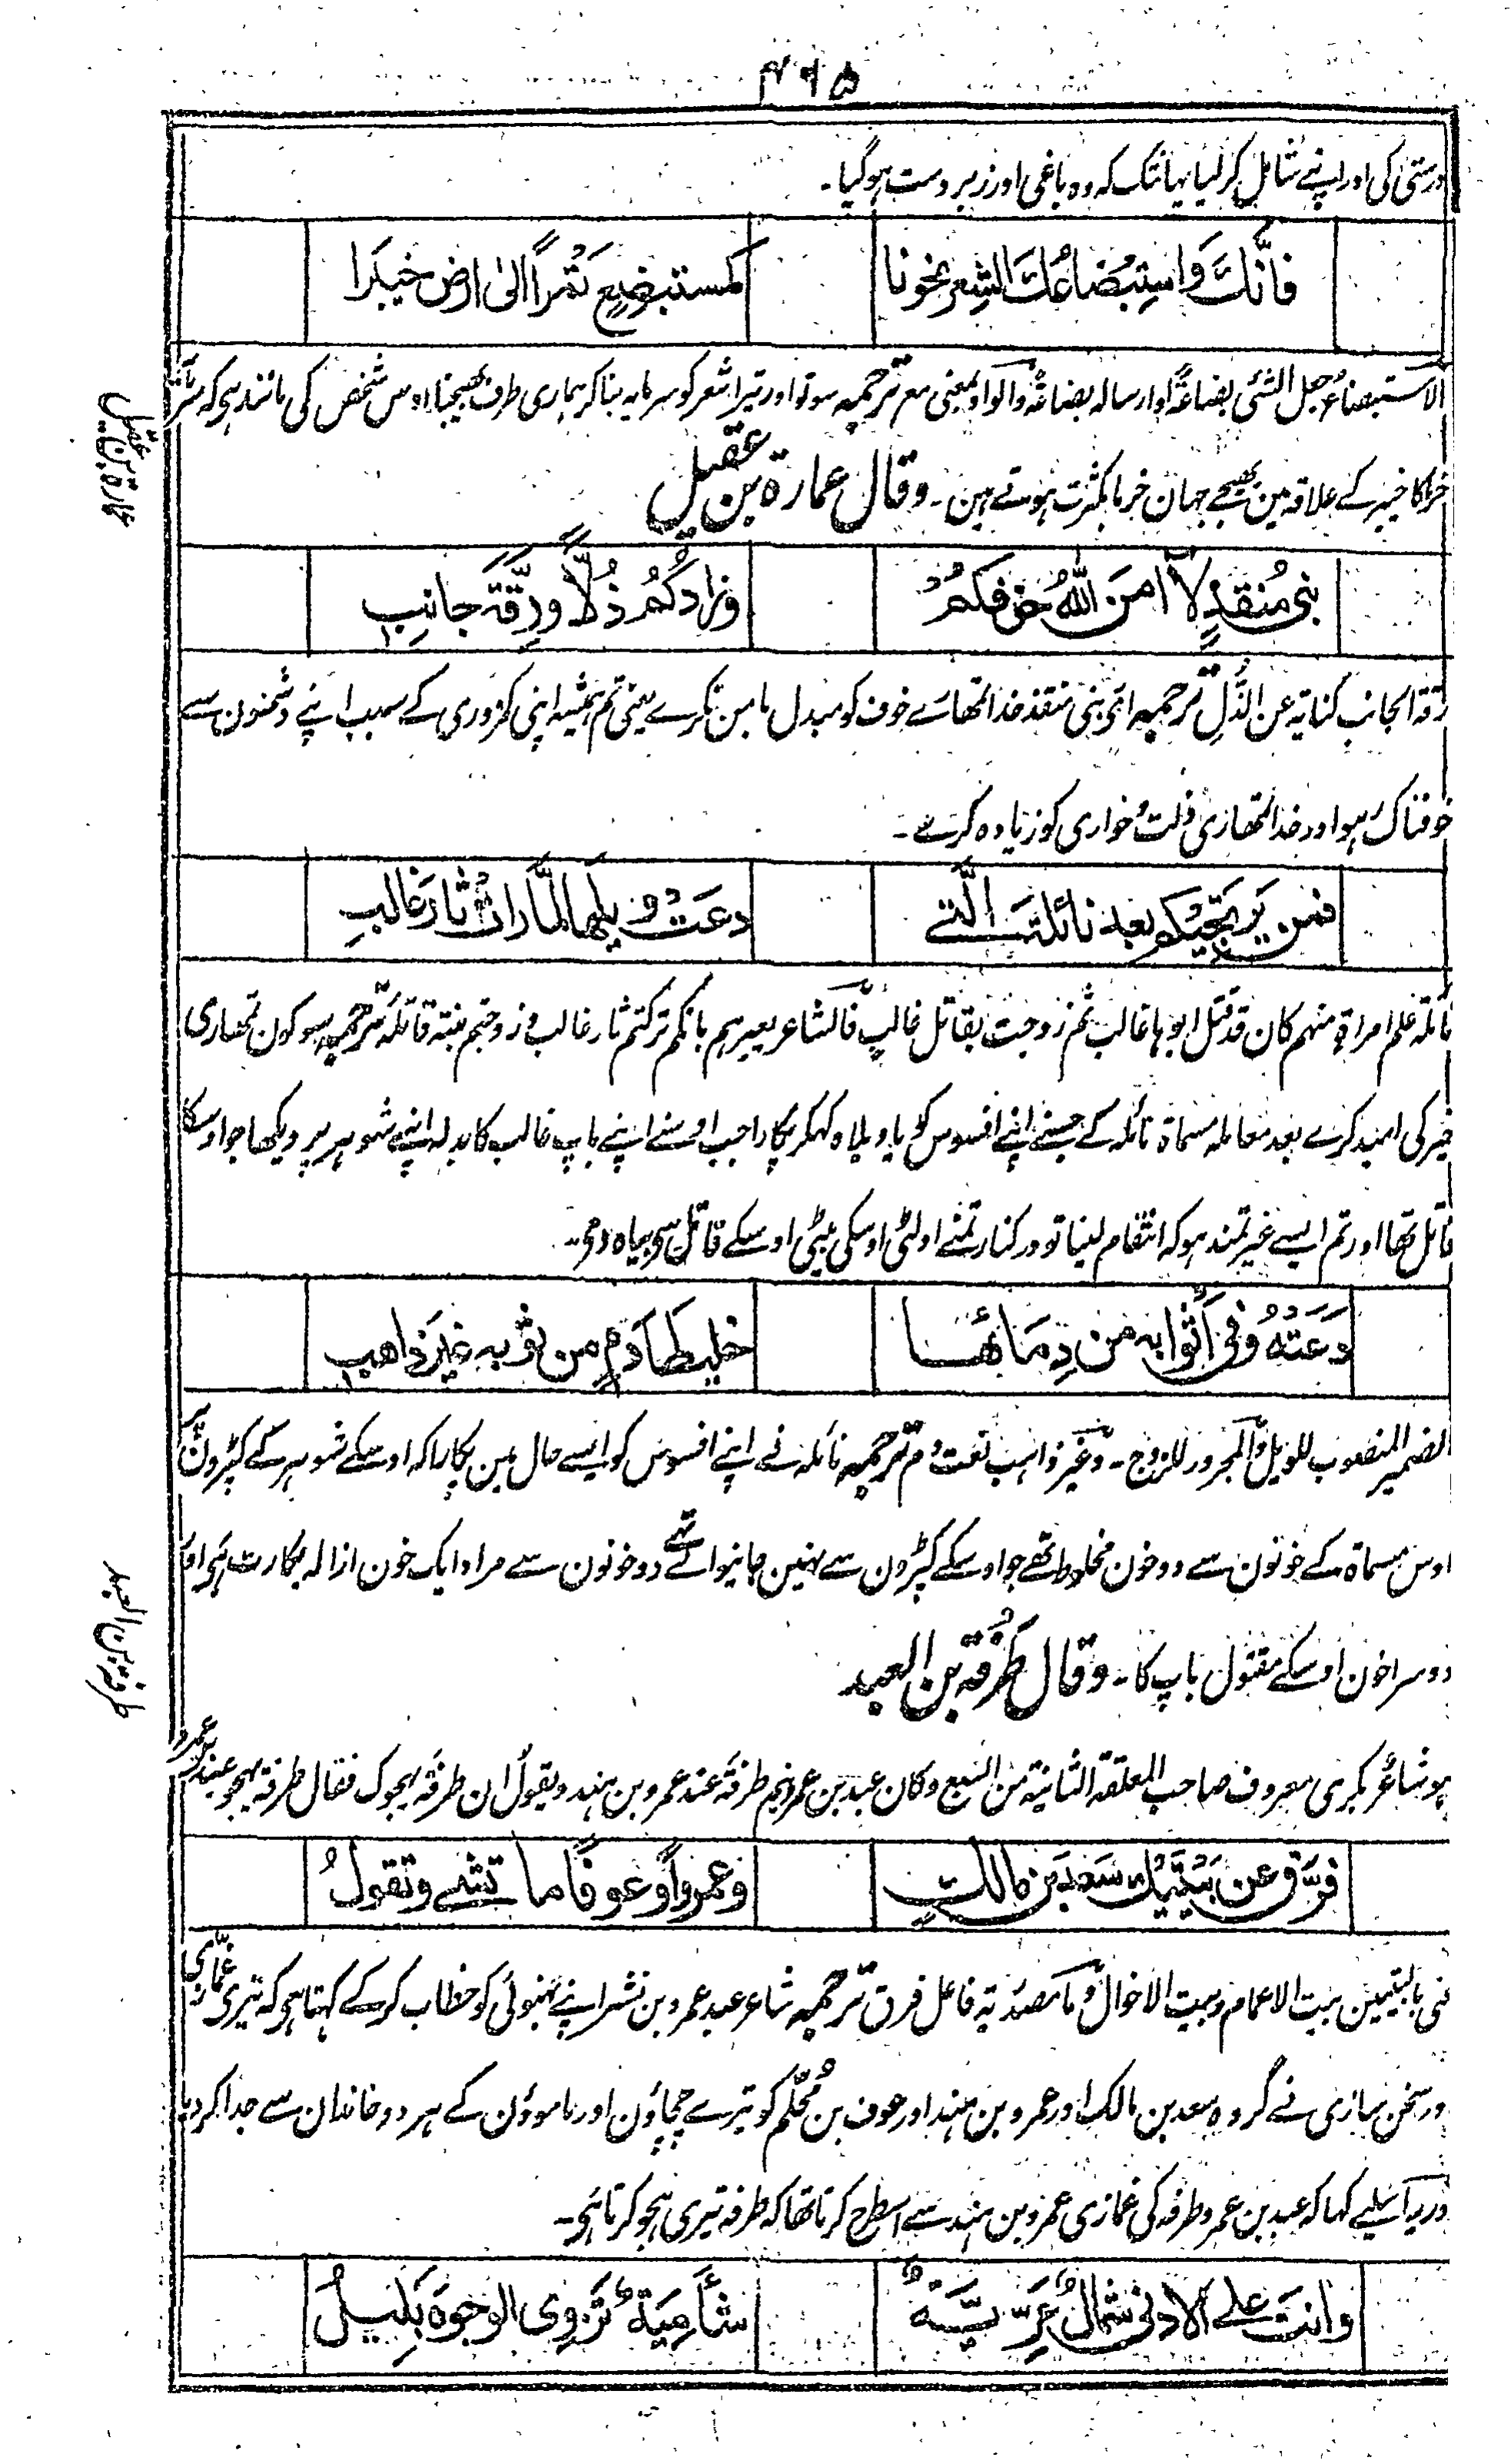 ۴۶۵
درستی کی اور اپنے شامل کر لیا یہانتک کہ وہ باغی اور زبردست ہو گیا۔
فانَّكَ وَاستِبْضَاعَكَ الشِعرَ نحونا
كمستبضِعٍ تَمْراً الىٰ ارض خيبَرا
الاستبضاعُ جعل الشئی بضاعَۃً او ارسالہ بضاعَۃً والواو بمعنی مع ترجمہ سو تو اور تیرا شعر کو سرمایہ بنا کر ہماری طرف بھیجنا اوس شخص کی مانند ہی کہ
خرما کا خیبر کے علاقہ مین بھیجے جہان خرما بکثرت ہوتے ہین۔ وقال عمارة بن عقیل
عمارة بن عقیل
بَنِي مُنقذٍ لا آمنَ اللهُ خوفكمُ
وزادكُم ذُلّاً ورِقّةَ جانِبِ
رقۃ الجانب کنایۃ عن الذُّلِّ ترجمہ ای بنی منقذ خدا تمھارے خوف کو مبدل بامن نکرے یعنی تم ہمیشہ اپنی کمزوری کے سبب اپنے دشمنون سے
خوفناک رہو اور خدا تمھاری ذلت و خواری کو زیادہ کرے۔
فمن يَرتجيكم بعد نائلةَ الّتے
دعَتْ ويلها لمّا رات ثارَ غالبِ
نائلۃ علم امراۃ منہم کان قد قتل ابوہا غالب ثم زوجت بقاتل غالب فالشاعر یعیرہم بانکم ترکتم ثار غالب و زوجتم بنتہ قاتلہ ترجمہ سو کون تمھاری
خیر کی امید کرے بعد معاملہ مسماۃ نائلہ کے جسنے اپنے افسوس کو یا ویلاہ کہکر پکارا جب اوسنے اپنے باپ غالب کا بدلہ اپنے شوہر پر دیکھا جو اوسکا
قاتل تھا اور تم ایسے غیرتمند ہو کہ انتقام لینا تو درکنار تمنے اولٹی اوسکی بیٹی اوسکے قاتل سے بیاہ دی۔
دَعَتْهُ وفي اَثوابه من دِمَائها
خليطا دَمٍ من ثوبه غيرَ ذاهبِ
الضمیر المنصوب للویل والمجرور للزوج۔ وغیر ذاہب نعت دم ترجمہ نائلہ نے اپنے افسوس کو ایسے حال مین پکارا کہ اوسکے شوہر کے کپڑون پر
اوس مسماۃ کے خونون سے دو خون مخلوط تھے جو اوسکے کپڑون سے نہین جانیوالے تھے دو خونون سے مراد ایک خون ازالہ بکارت ہی اور
دوسرا خون اوسکے مقتول باپ کا۔ وقال طَرَفة بن العبد
طرفة بن العبد
ہو شاعرٌ بکری معروف صاحب المعلقۃ الثانیۃ من السبع وکان عبد بن عمرو نیم طرفۃ عند عمرو بن ہند ویقول ان طرفۃ یہجوک فقال طرفۃ یہجو عبد بن عمرو
فرَّق عن بَيْتَيْكَ سَعدَ بن مالكٍ
وعمرواً وعوفاً ما تشے وتقولُ
عنی بالبیتین بیت الاعمام وبیت الاخوال وما مصدریۃ فاعل فرق ترجمہ شاعر عبد عمرو بن بشر اپنے بہنوئی کو خطاب کر کے کہتا ہی کہ تیری غمازی
ور سخن سازی نے گروہ سعد بن مالک اور عمرو بن ہند اور عوف بن محلّم کو تیرے چچاؤن اور ماموؤن کے ہر دو خاندان سے جدا کر دیا
ور یہ اسلیے کہا کہ عبد بن عمرو طرفہ کی غمازی عمرو بن ہند سے اسطرح کرتا تھا کہ طرفہ تیری ہجو کرتا ہی۔
وانتَ علے الادنى شمالٌ عَرِيّةٌ
شَأمِيَةٌ تَزوي الوجوهَ بَلِيلُ